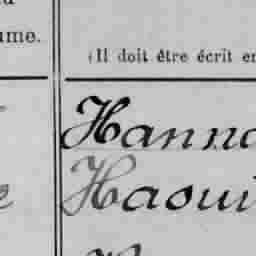 ume.
(Il doit être écrit en
Hanna
Haoui